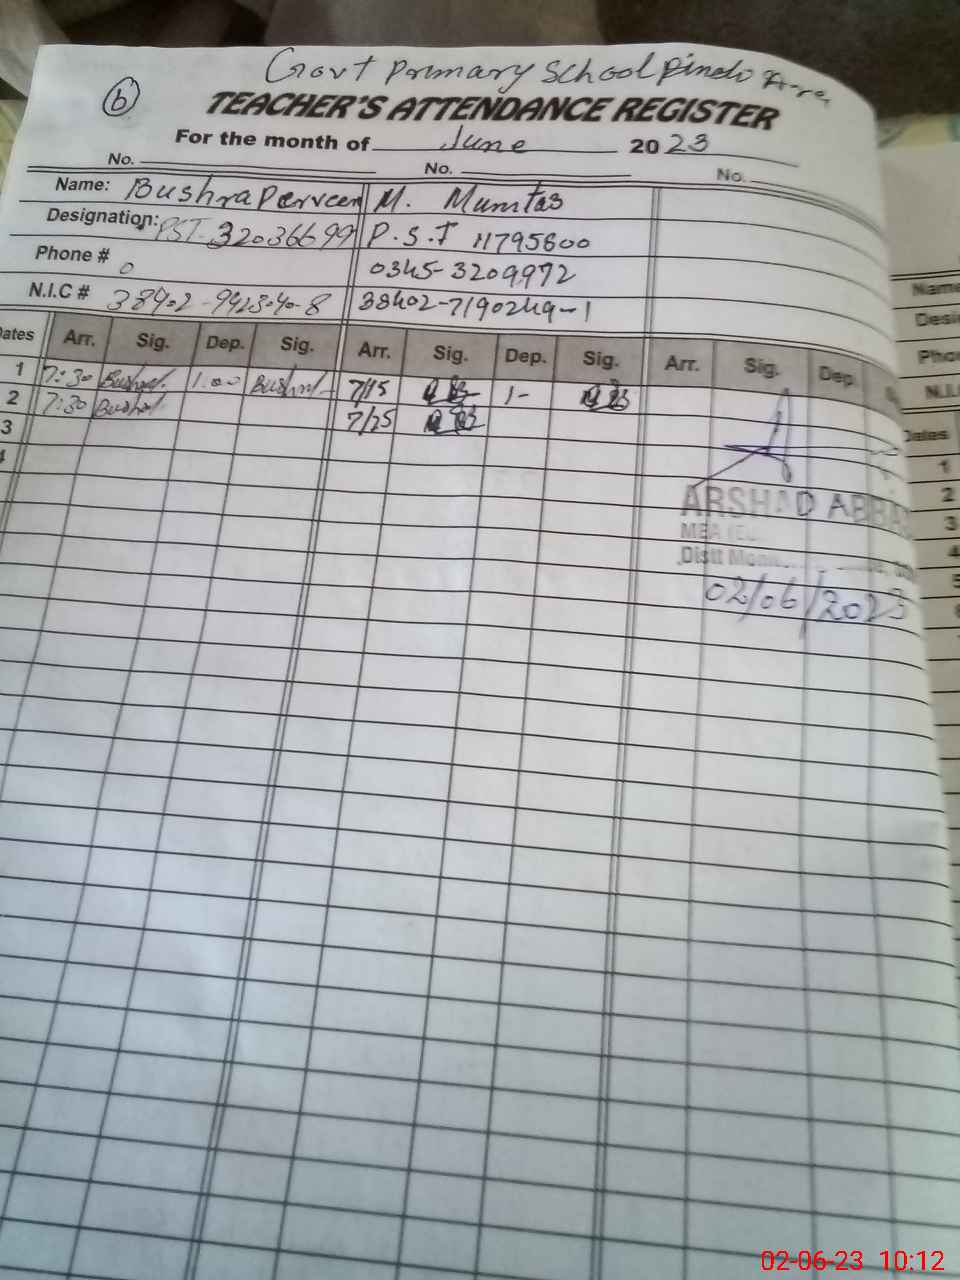 Govt Primary School Pindo
6
TEACHER'S ATTENDANCE REGISTER
For the month of June 2023
No. No. No.
Name: Bushra Parveen M. Mumtas
Designation: PST. 32036699 P.S.T 11795600
Phone # 0 0345-3209972
N.I.C # 38402-7190249-1
Dates Arr. Sig. Dep. Sig. Arr. Sig. Dep. Sig. Arr. Sig. Dep.
1 7:30 Bushra 1.00 Bushra 7/15 1-
2 7:30 Bushra 7/25
3
4
ARSHAD ABBAS
Distt
02/06/2023
Name
Desi
Pho
N.I.
Dates
1
2
3
4
5
02-06-23 10:12